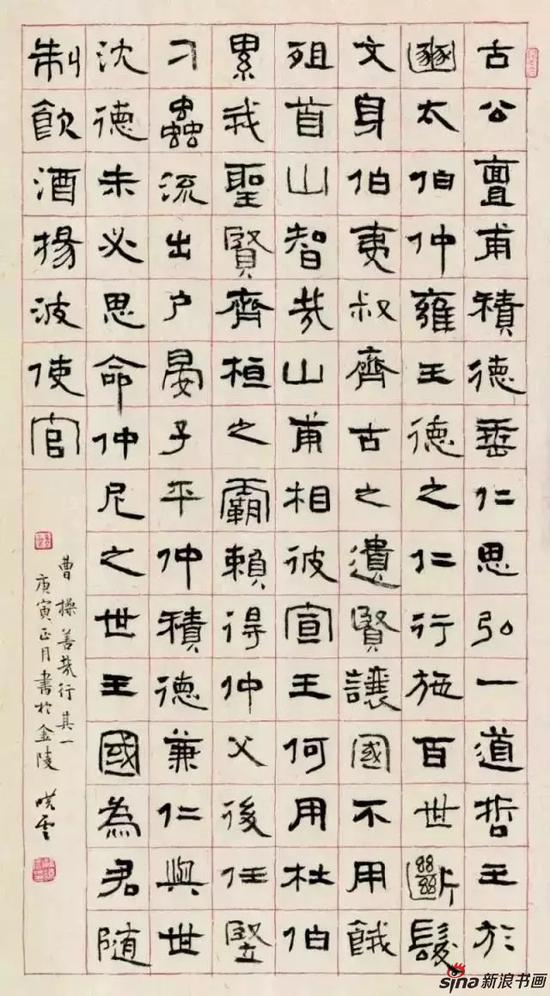 古公亶甫積德垂仁思弘一道哲王於
豳太伯仲雍王德之仁行施百世斷髮
文身伯夷叔齊古之遺賢讓國不用餓
殂首山智哉山甫相彼宣王何用杜伯
累我聖賢齊桓之霸賴得仲父後任豎
刁蟲流出戶晏子平仲積德兼仁與世
沈德未必思命仲尼之世王國為君隨
制飲酒揚波使官
曹操善哉行其一
庚寅正月書於金陵 曉雲
sina新浪书画